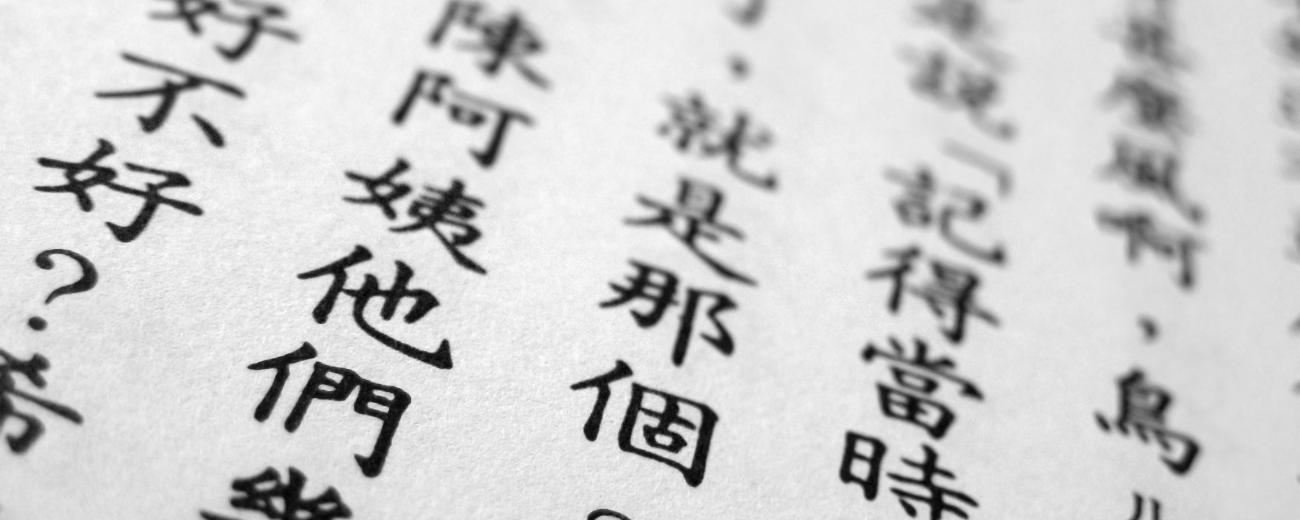 風啊，鳥
說「記得當時
，就是那個
陳阿姨他們幾
好不好？希